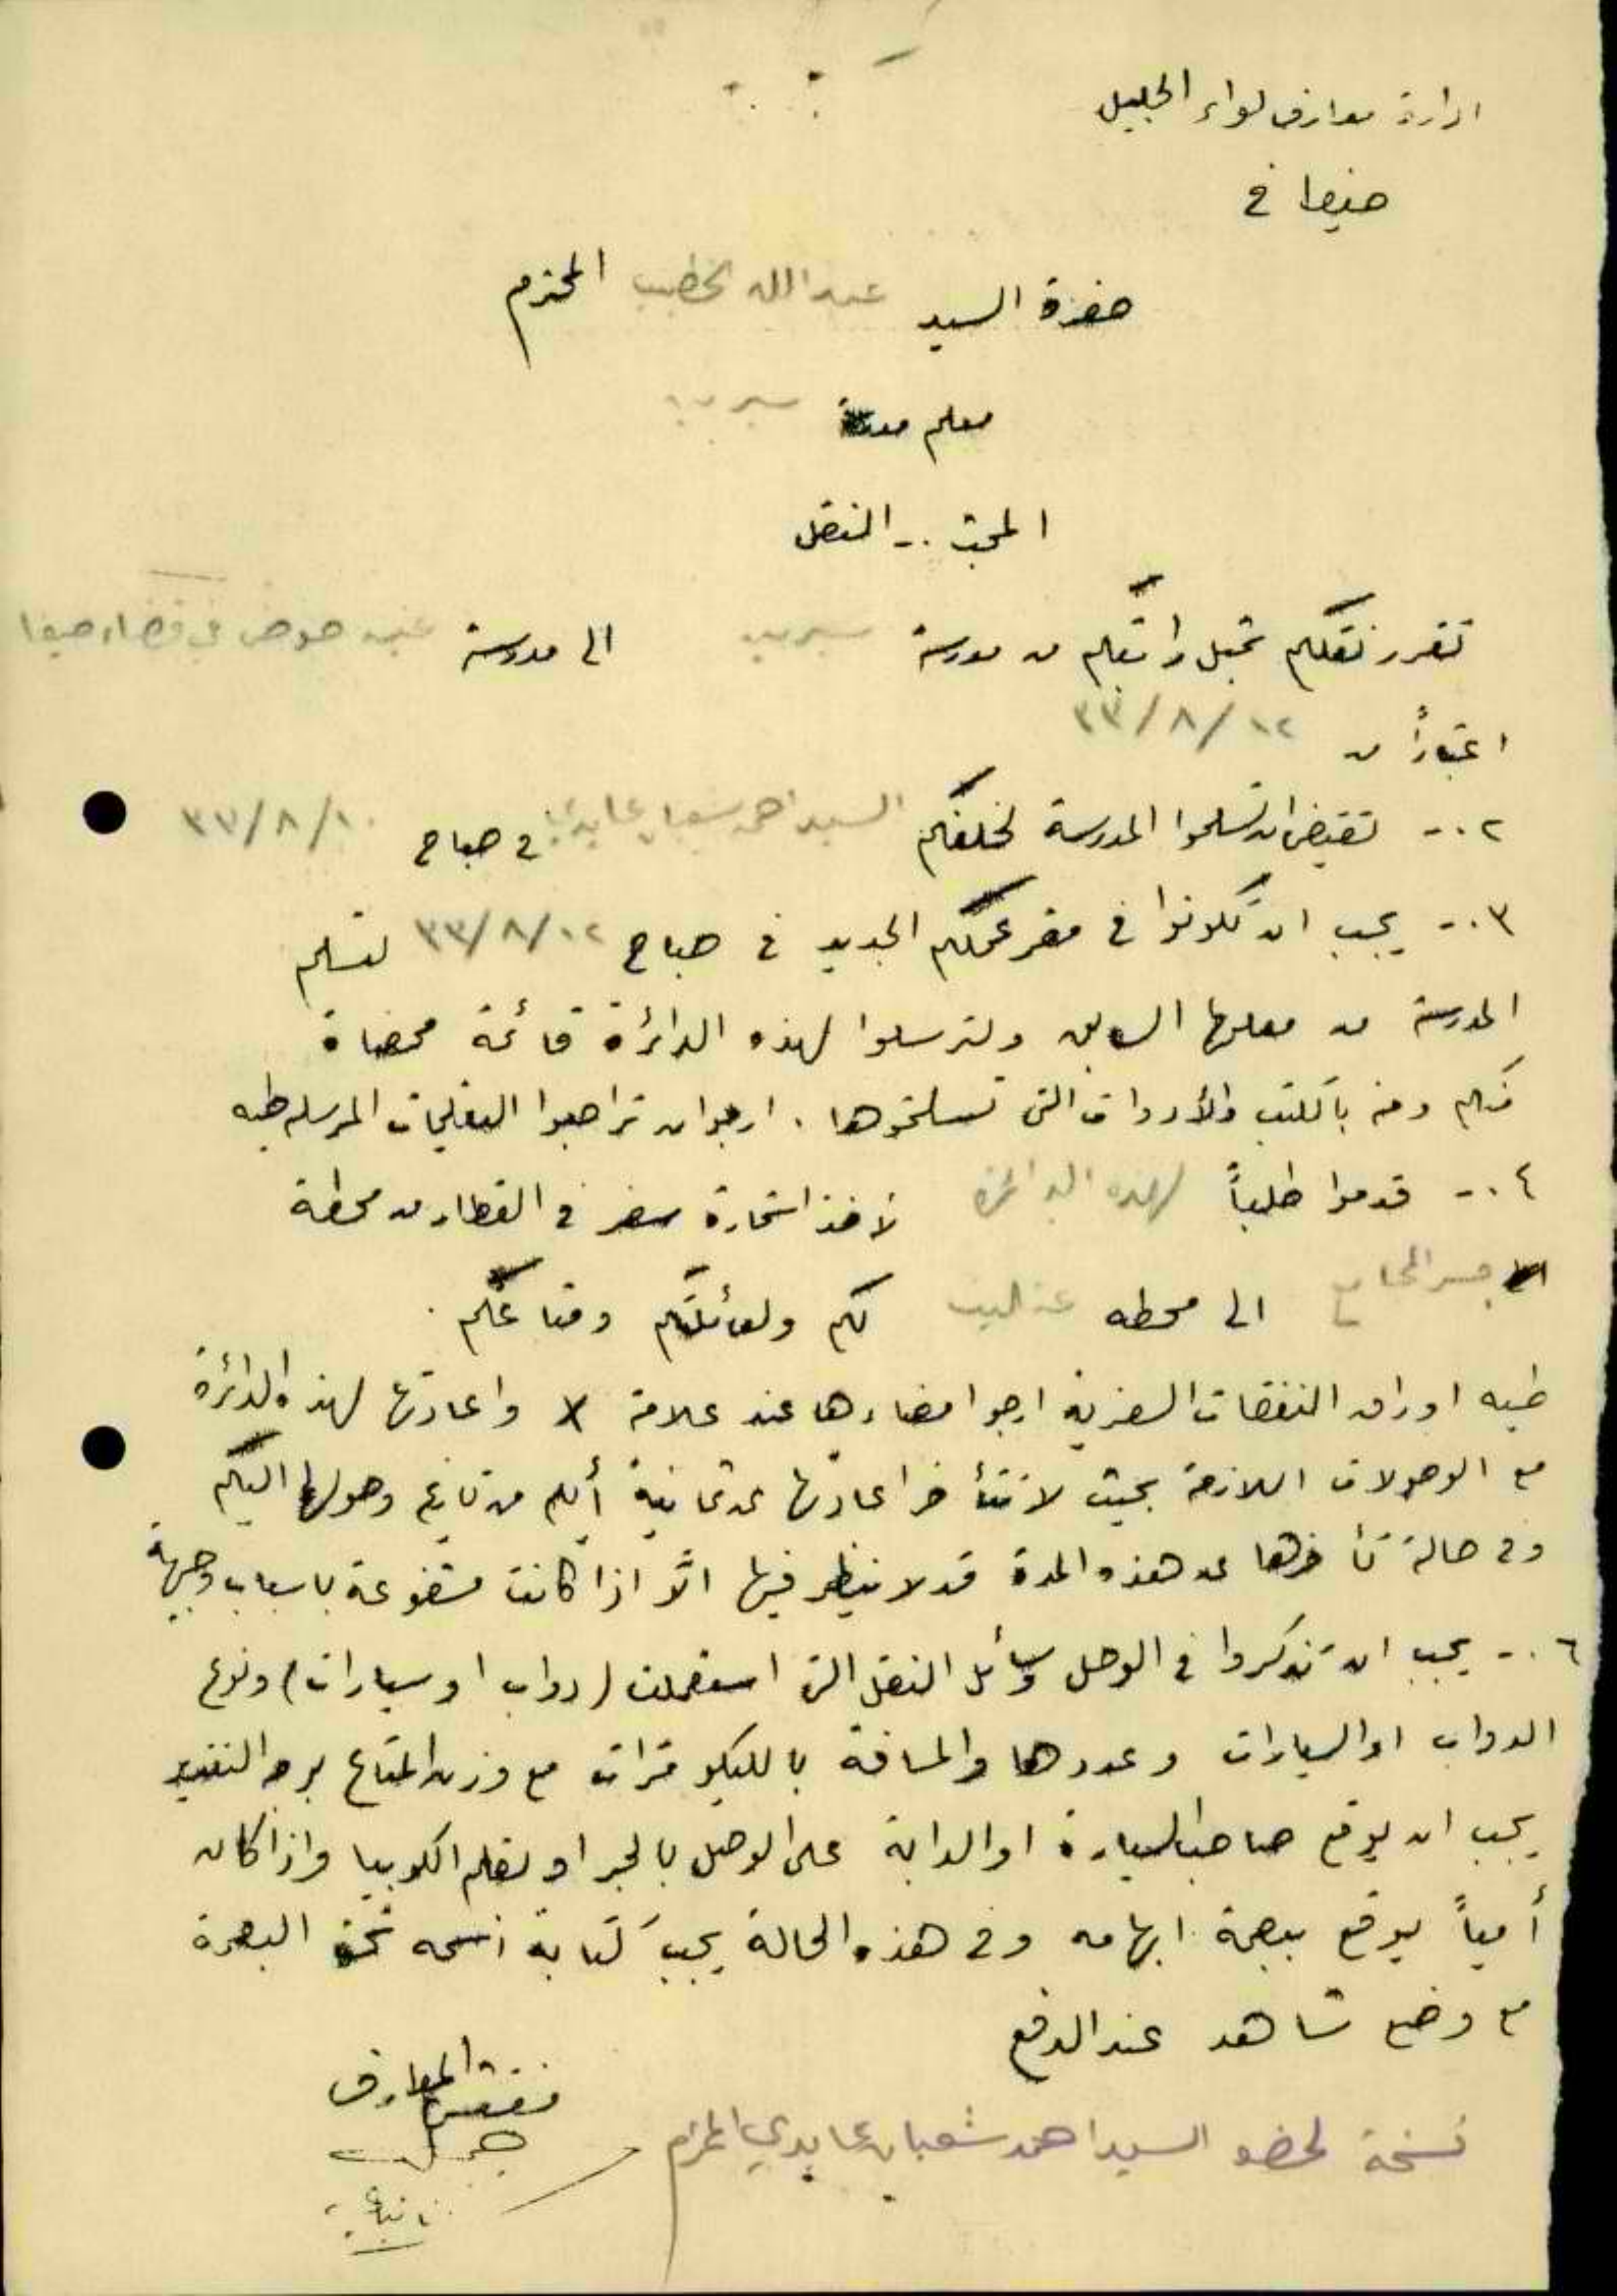 ادارة معارف لواء الجليل
حيفا في
حضرة السيد عبد الله الخطيب المحترم
معلم مدرسة سيرين
المبحث :- النقل
تقرر نقلكم بمثل راتبكم من مدرسة سيرين الى مدرسة عين حوض في قضاء حيفا
اعتباراً من ١٢/٨/٣٣
٢ :- تقتضي ان تسلموا المدرسة لخلفكم السيد احمد شعبان عابدي في صباح ١٠/٨/٣٣
٣ :- يجب ان تكونوا في مقر عملكم الجديد في صباح ١٢/٨/٣٣ لتسلم
المدرسة من معلمها السابق ولترسلوا لهذه الدائرة قائمة ممضاة
منكم ومنه بالكتب والأدوات التي تسلمتموها . ارجو ان تراجعوا التعليمات المرسله طيه
٤ :- قدموا طلباً لهذه الدائرة لأخذ استمارة سفر في القطار من محطة
جسر المجامع الى محطه عتليت لكم ولعائلتكم ومتاعكم .
طيه اوراق النفقات السفرية ارجو امضاءها عند علامة X واعادتها لهذه الدائرة
مع الوصولات اللازمة بحيث لا تتأخر اعادتها عن ثمانية أيام من تاريخ وصولها اليكم
وفي حالة تأخرها عن هذه المدة قد لا ينظر فيها الّا اذا كانت مشفوعة باسباب وجيهة
٦ :- يجب ان تذكروا في الوصل وسائل النقل التي استعملت (دواب او سيارات) ونوع
الدواب او السيارات وعددها والمسافة بالكيلو مترات مع وزن المتاع بوجه التقدير
يجب ان يوقع صاحب السيارة او الدابة على الوصل بالحبر او بقلم الكوبيا واذا كان
أمياً يوقع ببصمة ابهامه وفي هذه الحالة يجب كتابة اسمه تحت البصمة
مع وضع شاهد عند الدفع
مفتش المعارف
نسخة لحضرة السيد احمد شعبان عابدي المحترم